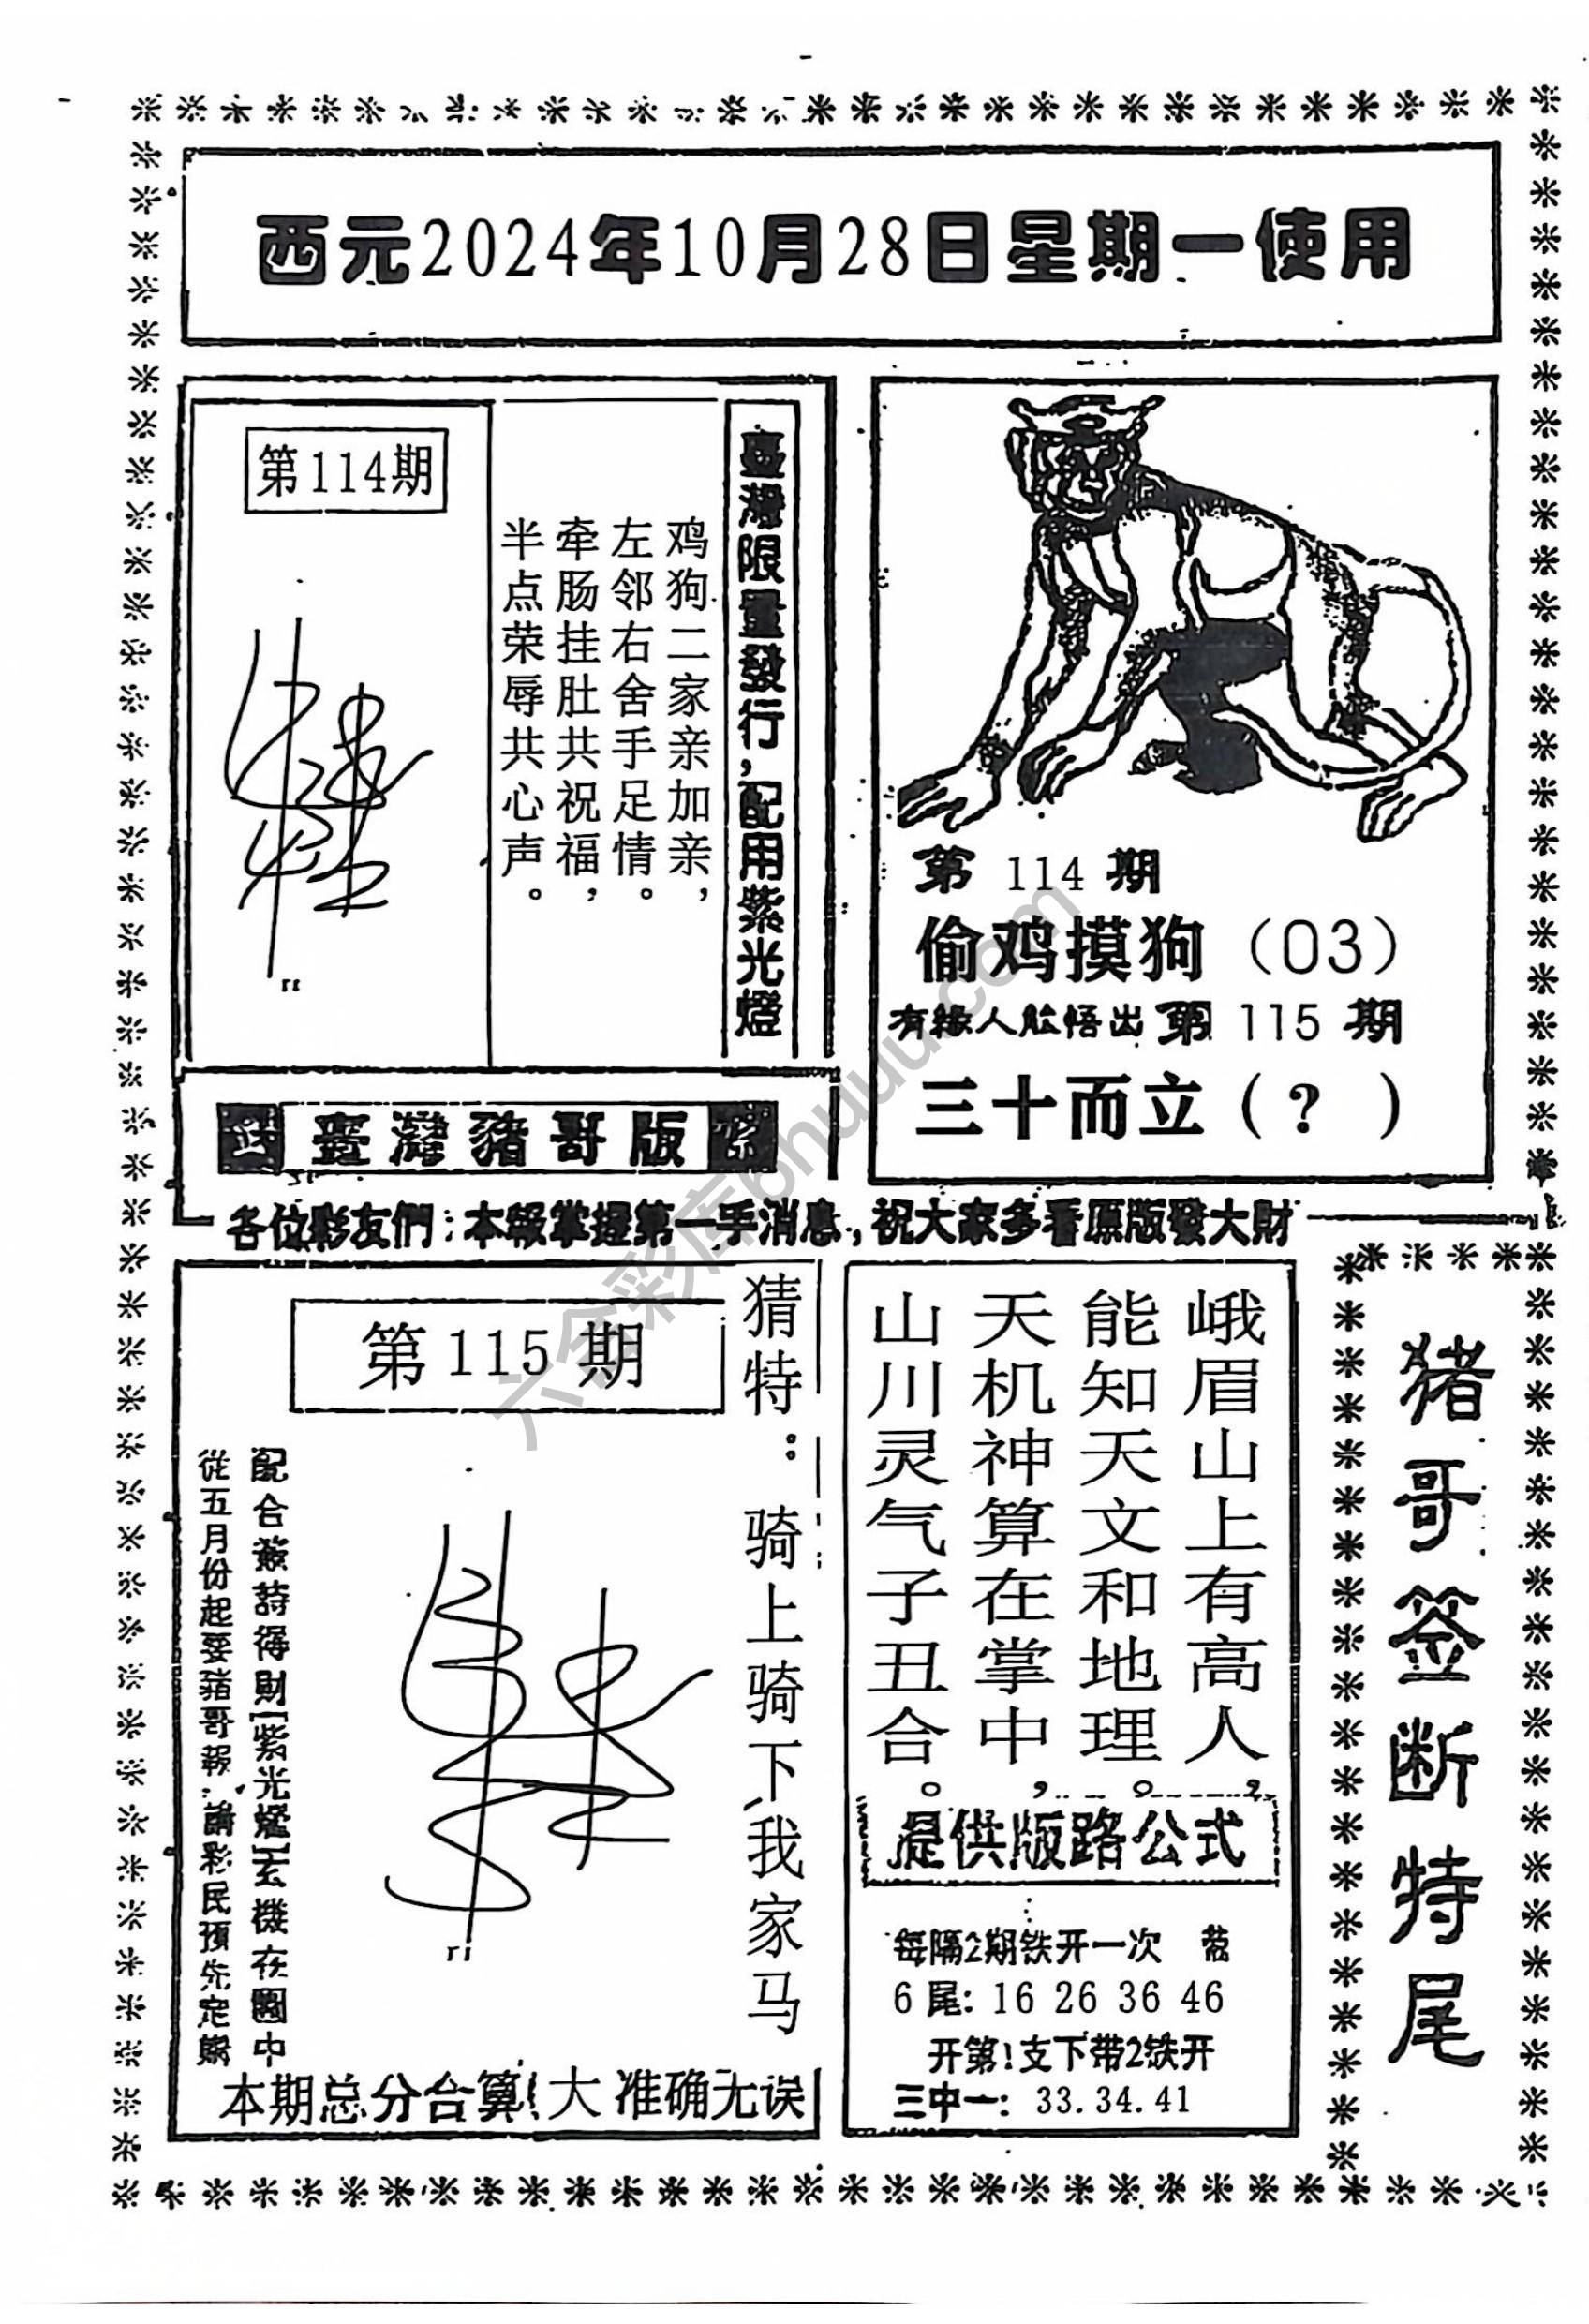 西元2024年10月28日星期一使用
第114期
鸡狗二家亲加亲，
左邻右舍手足情。
牵肠挂肚共祝福，
半点荣辱共心声。
臺灣限量發行，配用紫光燈
第 114 期
偷鸡摸狗（03）
有緣人能悟出 第 115 期
三十而立（？）
臺灣豬哥版
各位彩友們：本報掌握第一手消息，祝大家多看原版發大財
第 115 期
猜特：骑上骑下我家马
配合簽詩得財【紫光燈】玄機在圖中
從五月份起要豬哥報，請彩民預先定購
本期总分合算！大 准确无误
峨眉山上有高人，
能知天文和地理。
天机神算在掌中，
山川灵气子丑合。
提供版路公式
每隔2期铁开一次
6尾：16 26 36 46
开第1支下带2铁开
三中一：33.34.41
猪哥签断特尾
六合彩库bhuuu.com